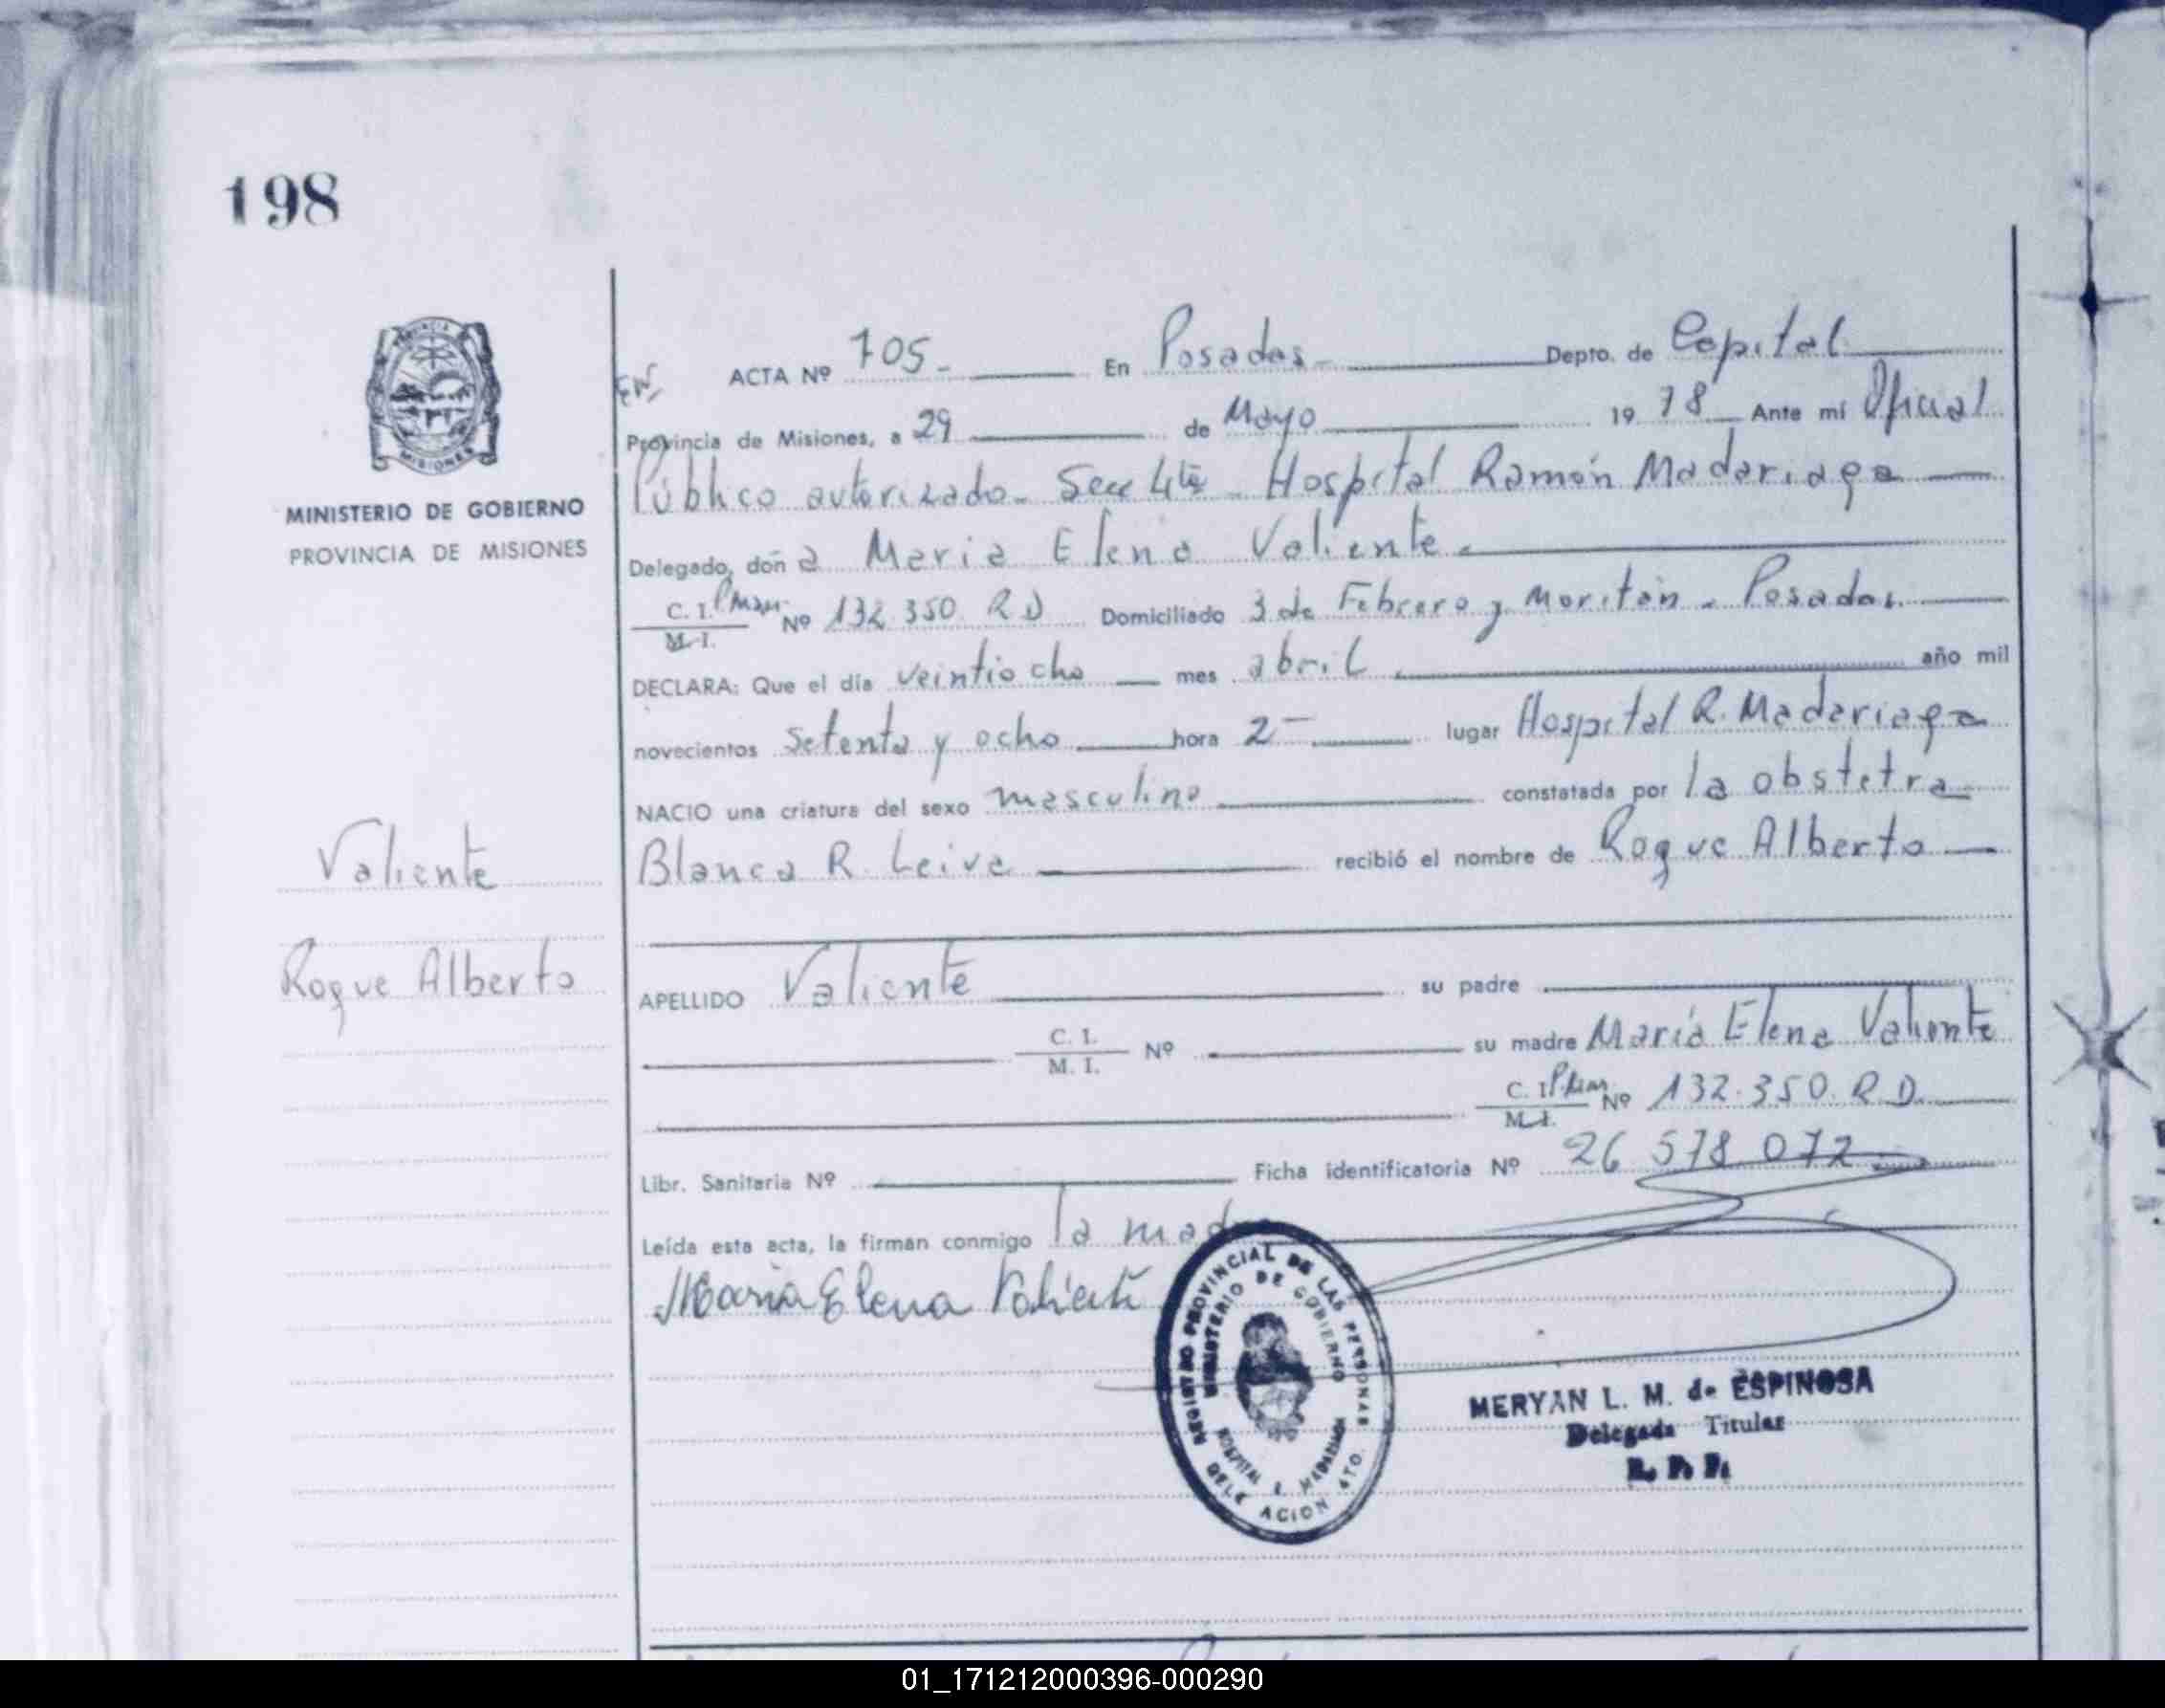 198
MINISTERIO DE GOBIERNO
PROVINCIA DE MISIONES
ACTA Nº 705 En Posadas Depto. de Capital
Provincia de Misiones, a 29 de Mayo 1978 Ante mí Oficial
Público autorizado Secc 4ta Hospital Ramón Madariaga
Delegado, doña Maria Elena Valiente
C. I. M. I. Nº 132.350 R D Domiciliado 3 de Febrero y Moritán - Posadas
DECLARA: Que el día veintiocho mes abril año mil
novecientos setenta y ocho hora 2 lugar Hospital R. Madariaga
NACIO una criatura del sexo masculino constatada por la obstetra
Blanca R. Leiva recibió el nombre de Roque Alberto
Valiente
Roque Alberto
APELLIDO Valiente su padre
C. I. M. I. Nº su madre María Elena Valiente
C. I. M. I. Nº 132.350 R.D.
Libr. Sanitaria Nº Ficha identificatoria Nº 26 578 072
Leída esta acta, la firman conmigo la madre
Maria Elena Valiente
REGISTRO PROVINCIAL DE LAS PERSONAS
MINISTERIO DE GOBIERNO
HOSPITAL R. MADARIAGA
DELEGACION 4TO.
MERYAN L. M. de ESPINOSA
Delegada Titular
R. P. P.
01_171212000396-000290